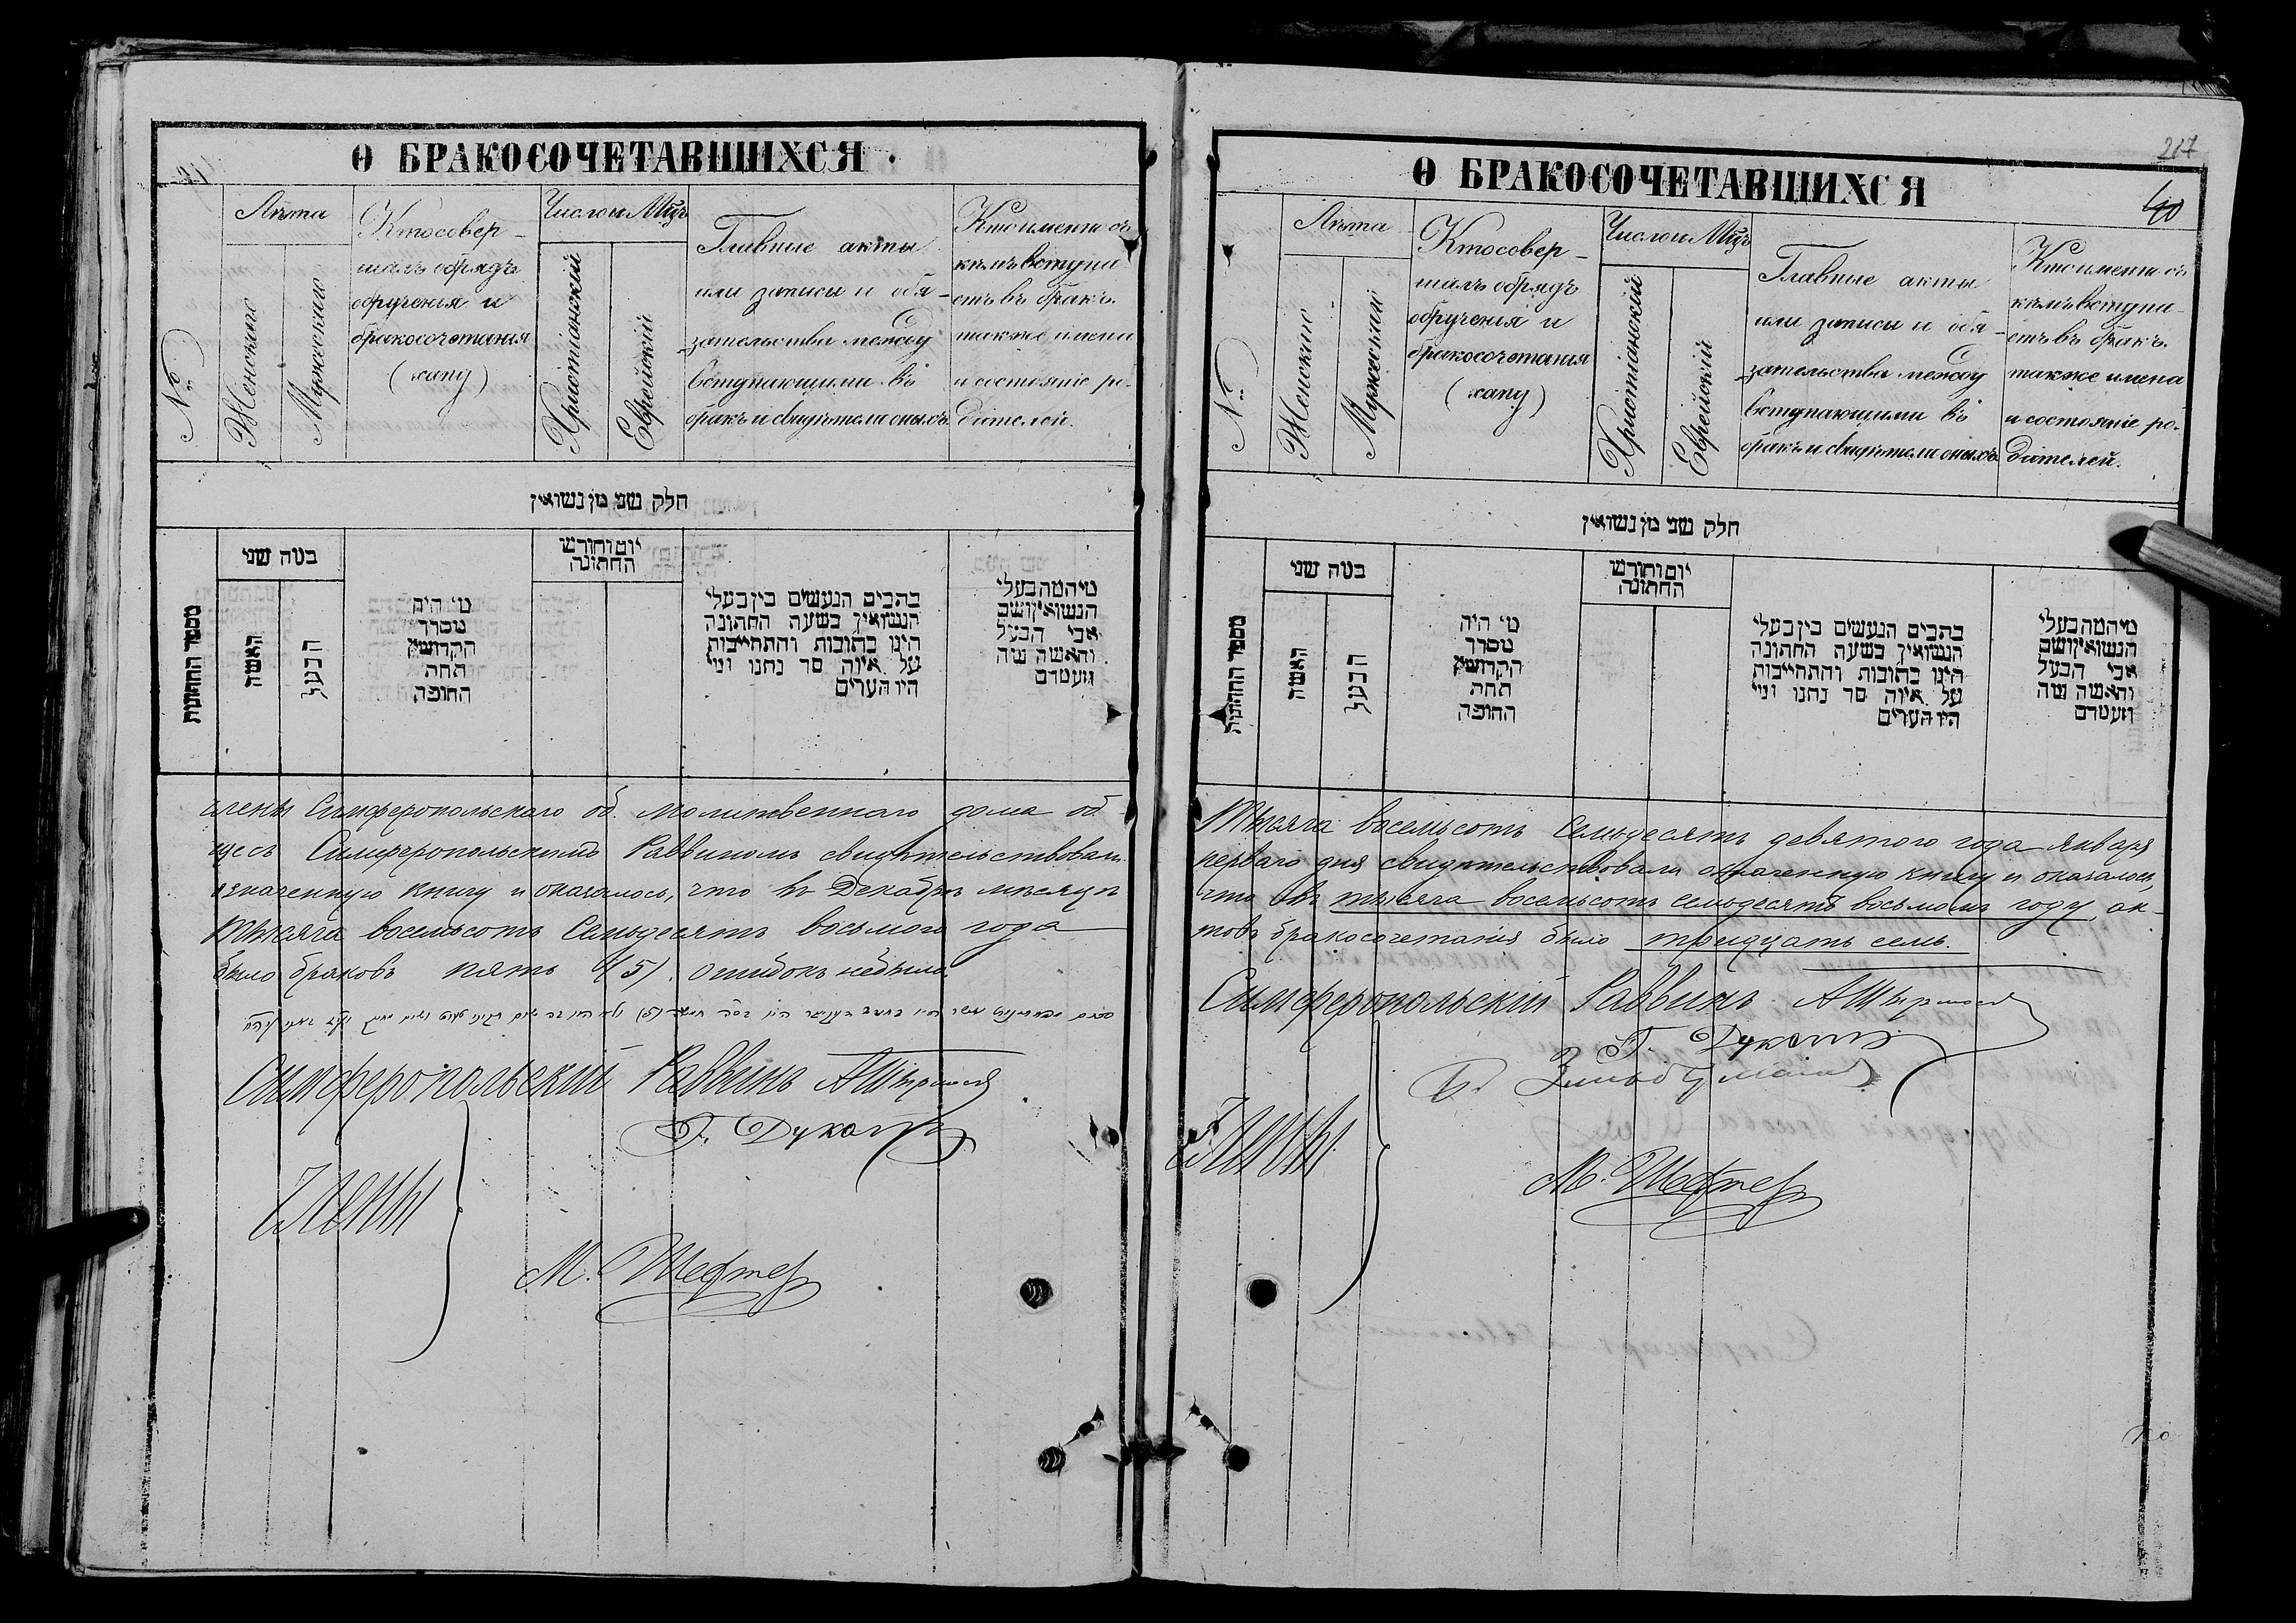 О БРАКОСОЧЕТАВШИХСЯ.
№
Лѣта
Женскаго
Мужескаго
Кто совер-
шалъ обрядъ
обрученія и
бракосочетанія
(хапу)
Число и Мцъ
Христіанскій
Еврейскій
Главные акты
или записи и обя-
зательства между
вступающими въ
бракъ и свидѣтели оныхъ
Кто именно съ
кѣмъ вступа-
етъ въ бракъ.
также имена
и состояніе ро-
дителей.
חלק שני מן נשואין
מספר החתונות
כמה שני
האשה
הבעל
מי היה
מסדר
הקדושין
תחת
החופה
יום וחודש
החתונה
כתבים הנעשים בין בעלי
הנשואין בשעה החתונה
היינו כתובות והתחייבות
על איזה סך נתנו ומי
היו העדים
מי המה בעלי
הנשואין ושם
אבי הבעל
והאשה ומה
מעמדם
члены Симферопольскаго об. молитвеннаго дома об-
щесъ Симферопольскимъ Раввиномъ свидѣтельствовали
означенную книгу и оказалось, что въ Декабрѣ мѣсяцѣ
тысяча восемьсотъ семьдесятъ восьмого года
было браковъ пять (5). ошибокъ небыло
Симферопольскій Раввинъ
Члены
М. Шефтер
О БРАКОСОЧЕТАВШИХСЯ
217
40
№
Лѣта
Женскаго
Мужескаго
Кто совер-
шалъ обрядъ
обрученія и
бракосочетанія
(хапу)
Число и Мцъ
Христіанскій
Еврейскій
Главные акты
или записи и обя-
зательства между
вступающими въ
бракъ и свидѣтели оныхъ
Кто именно съ
кѣмъ вступа-
етъ въ бракъ.
также имена
и состояніе ро-
дителей.
חלק שני מן נשואין
מספר החתונות
כמה שני
האשה
הבעל
מי היה
מסדר
הקדושין
תחת
החופה
יום וחודש
החתונה
כתבים הנעשים בין בעלי
הנשואין בשעה החתונה
היינו כתובות והתחייבות
על איזה סך נתנו ומי
היו העדים
מי המה בעלי
הנשואין ושם
אבי הבעל
והאשה ומה
מעמדם
Тысяча восемьсотъ семьдесятъ девятого года января
перваго дня свидѣтельствовали означенную книгу и оказалось,
что въ тысяча восемьсотъ семьдесятъ восьмомъ году ак-
товъ бракосочетанія было тридцать семь.
Симферопольскій Раввинъ
Члены
М. Шефтер